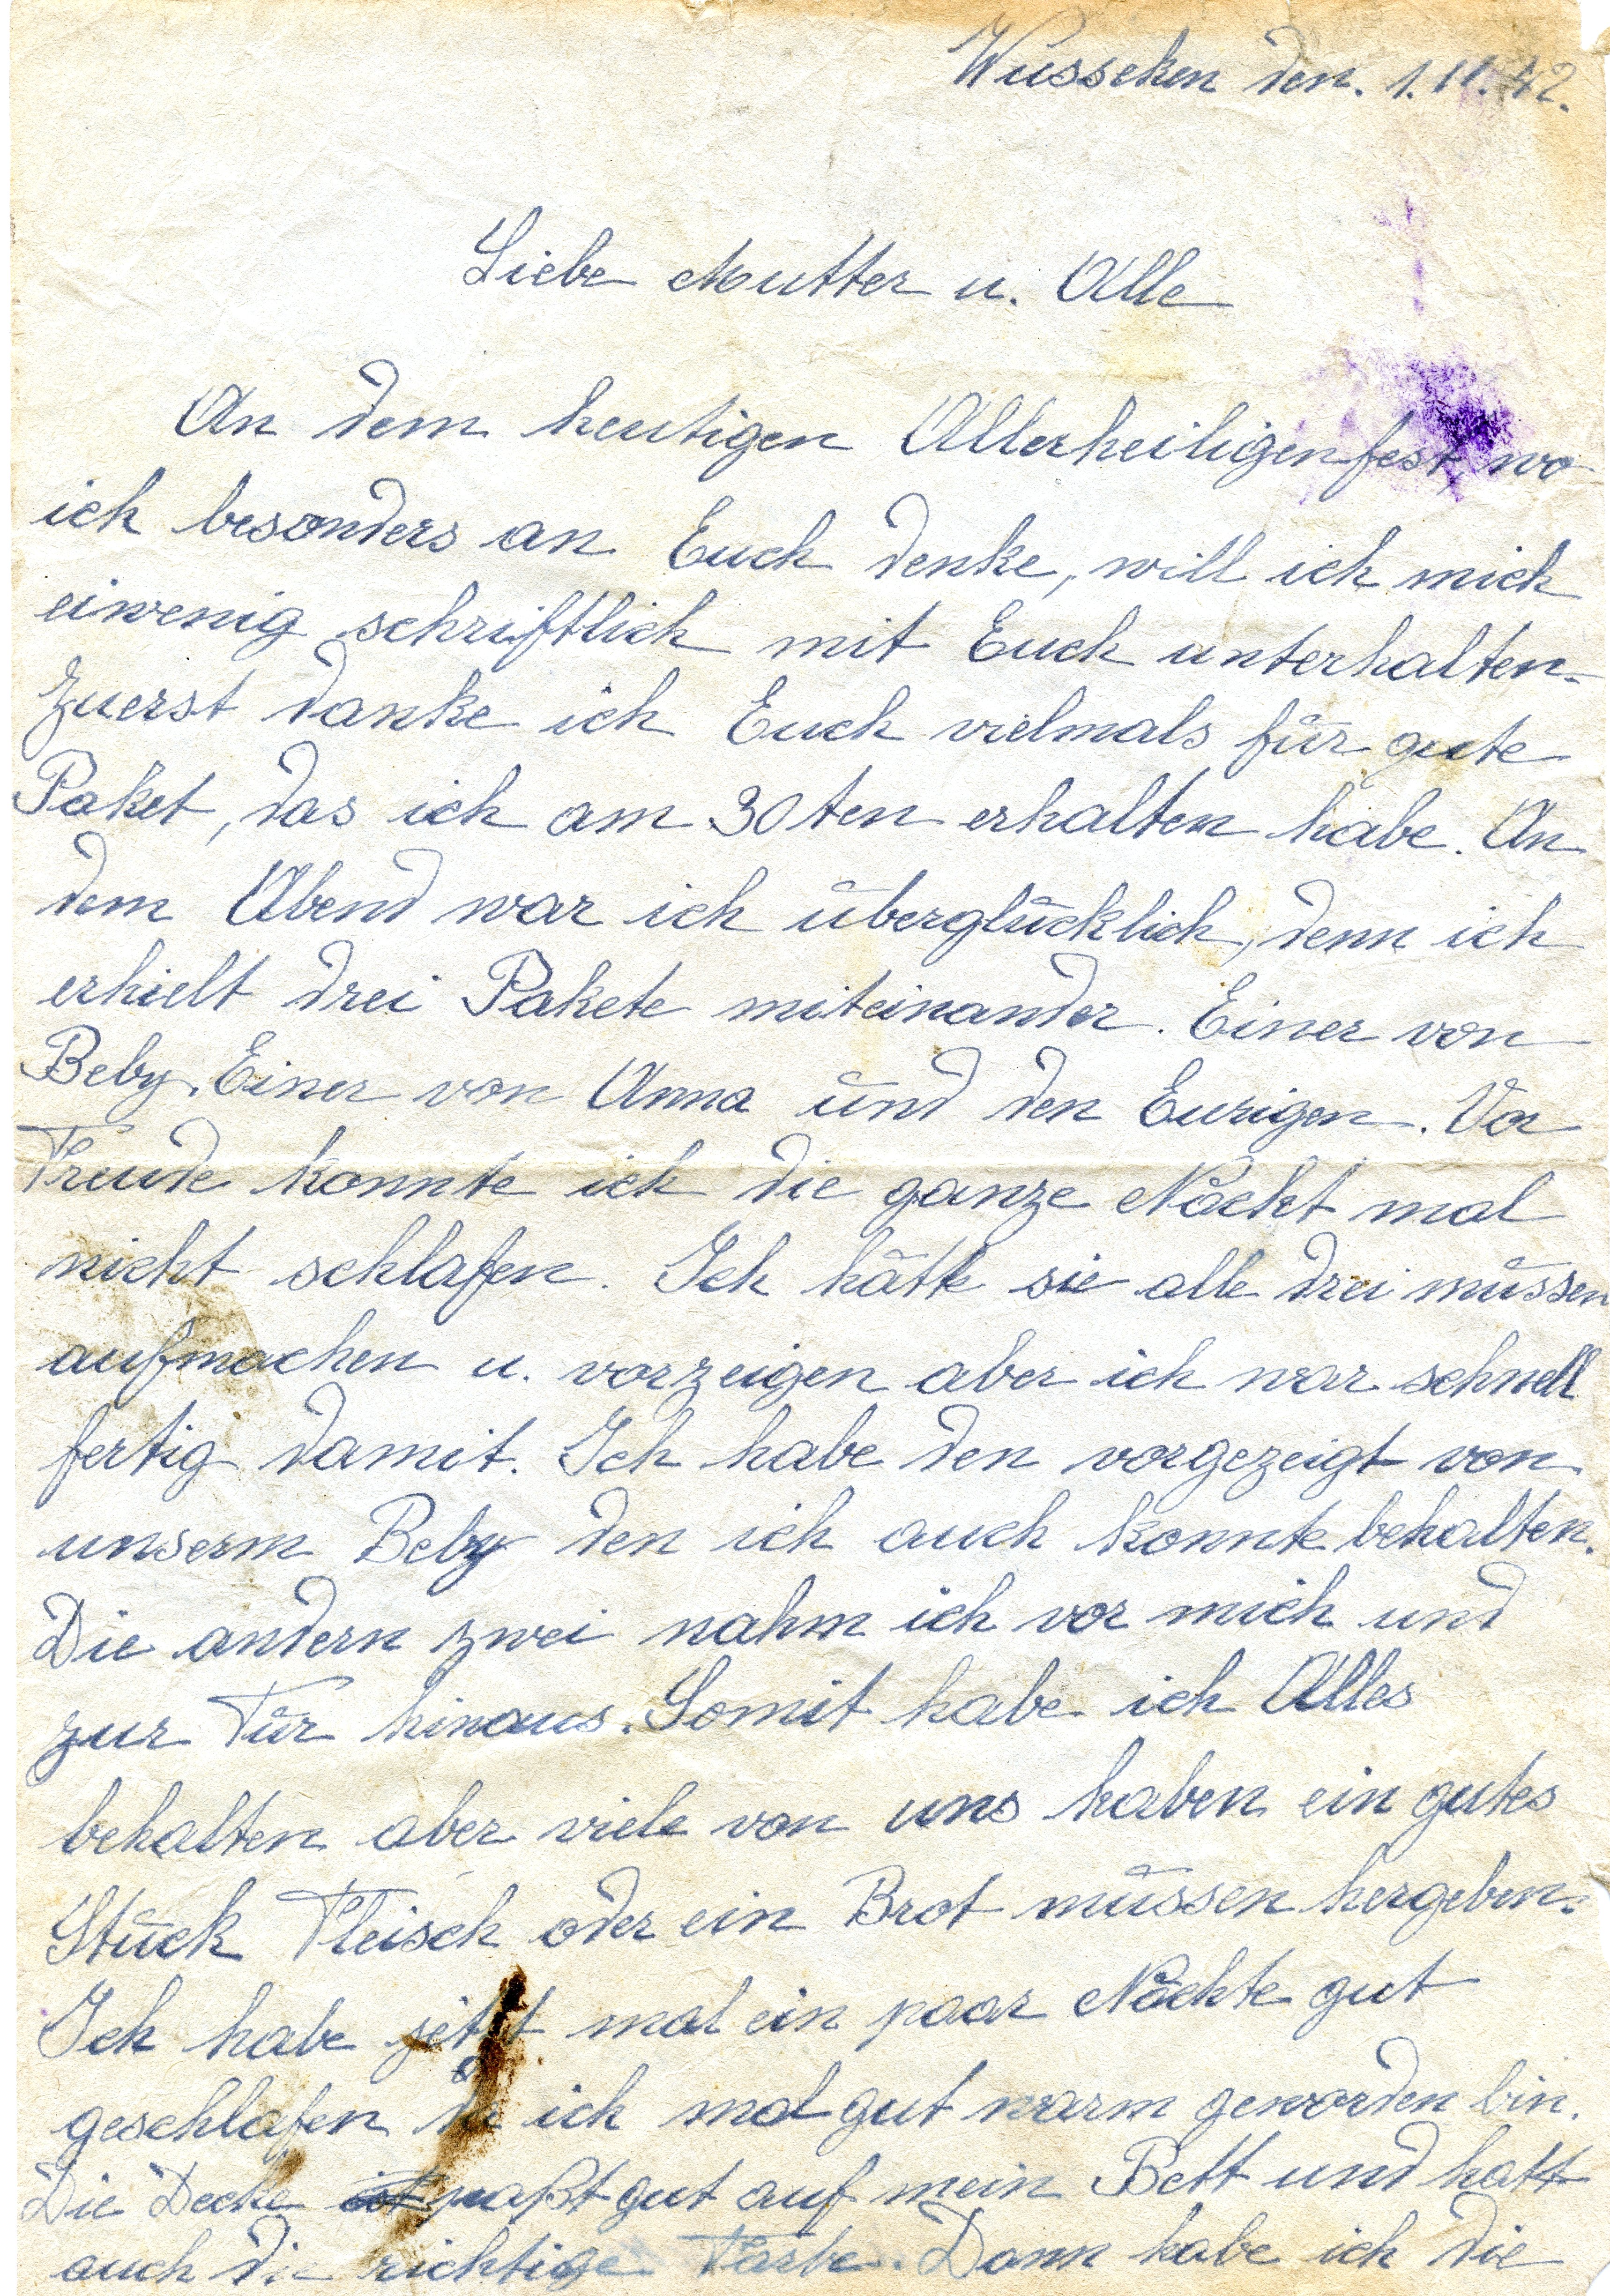 Wusseken den. 1.11.42.
Liebe Mutter u. Alle
An dem heutigen Allerheiligenfest, wo
ich besonders an Euch denke, will ich mich
eiwenig schriftlich mit Euch unterhalten.
Zuerst danke ich Euch vielmals für gute
Paket, das ich am 30ten erhalten habe. An
dem Abend war ich überglücklich, denn ich
erhielt drei Pakete miteinander. Einer von
Beby. Einer von Anna und den Eurigen. Vor
Freude konnte ich die ganze Nacht mal
nicht schlafen. Ich hätte sie alle drei müssen
aufmachen u. vorzeigen aber ich war schnell
fertig damit. Ich habe den vorgezeigt von
unserm Beby den ich auch konnte behalten.
Die andern zwei nahm ich vor mich und
zur Tür hinaus. Somit habe ich Alles
behalten aber viele von uns haben ein gutes
Stück Fleisch oder ein Brot müssen hergeben.
Ich habe jetzt mal ein paar Nächte gut
geschlafen da ich mal gut warm geworden bin.
Die Decke ist paßt gut auf mein Bett und hatt
auch die richtige Farbe. Dann habe ich die